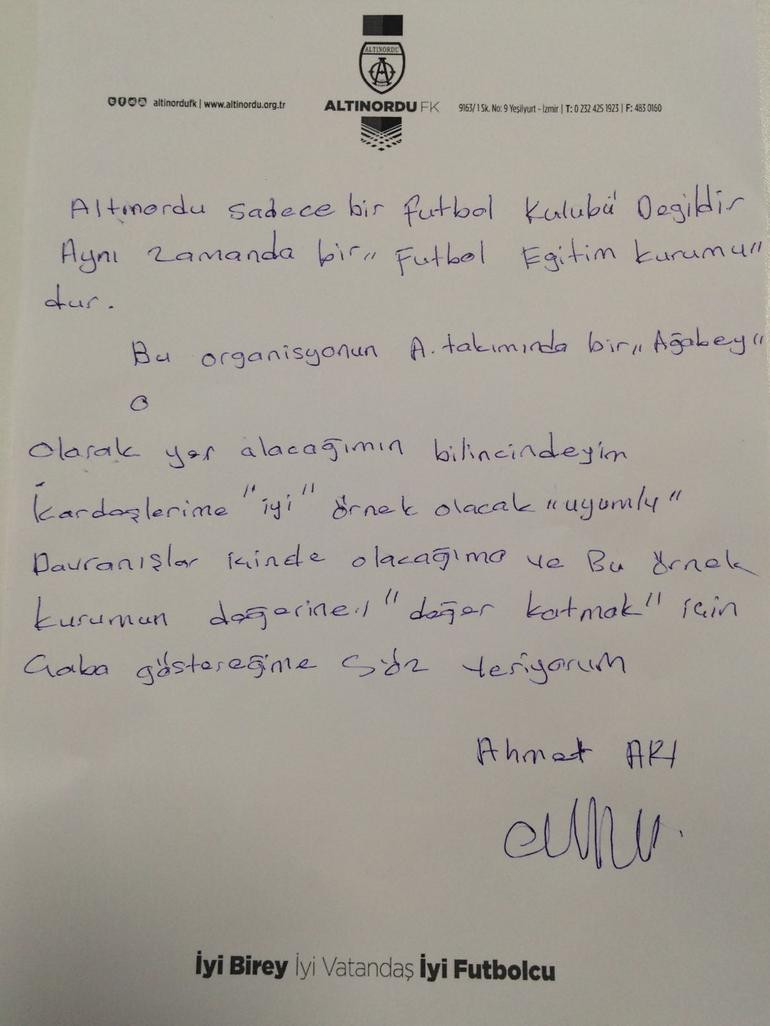 ALTINORDU
altinordufk | www.altinordu.org.tr
ALTINORDU FK
9163/1 Sk. No: 9 Yeşilyurt - İzmir | T: 0 232 425 1923 | F: 483 0160
Altınordu sadece bir futbol Kulubü Degildir
Aynı zamanda bir,, Futbol Egitim kurumu"
dur.
Bu organisyonun A. takımında bir,, Ağabey"
o
olarak yer alacağımın bilincindeyim
Kardeşlerime "iyi" örnek olacak "uyumlu"
Davranışlar içinde olacağıma ve Bu örnek
kurumun değerine,, "değer katmak" için
Çaba göstereğime Söz veriyorum
Ahmet ARI
İyi Birey İyi Vatandaş İyi Futbolcu